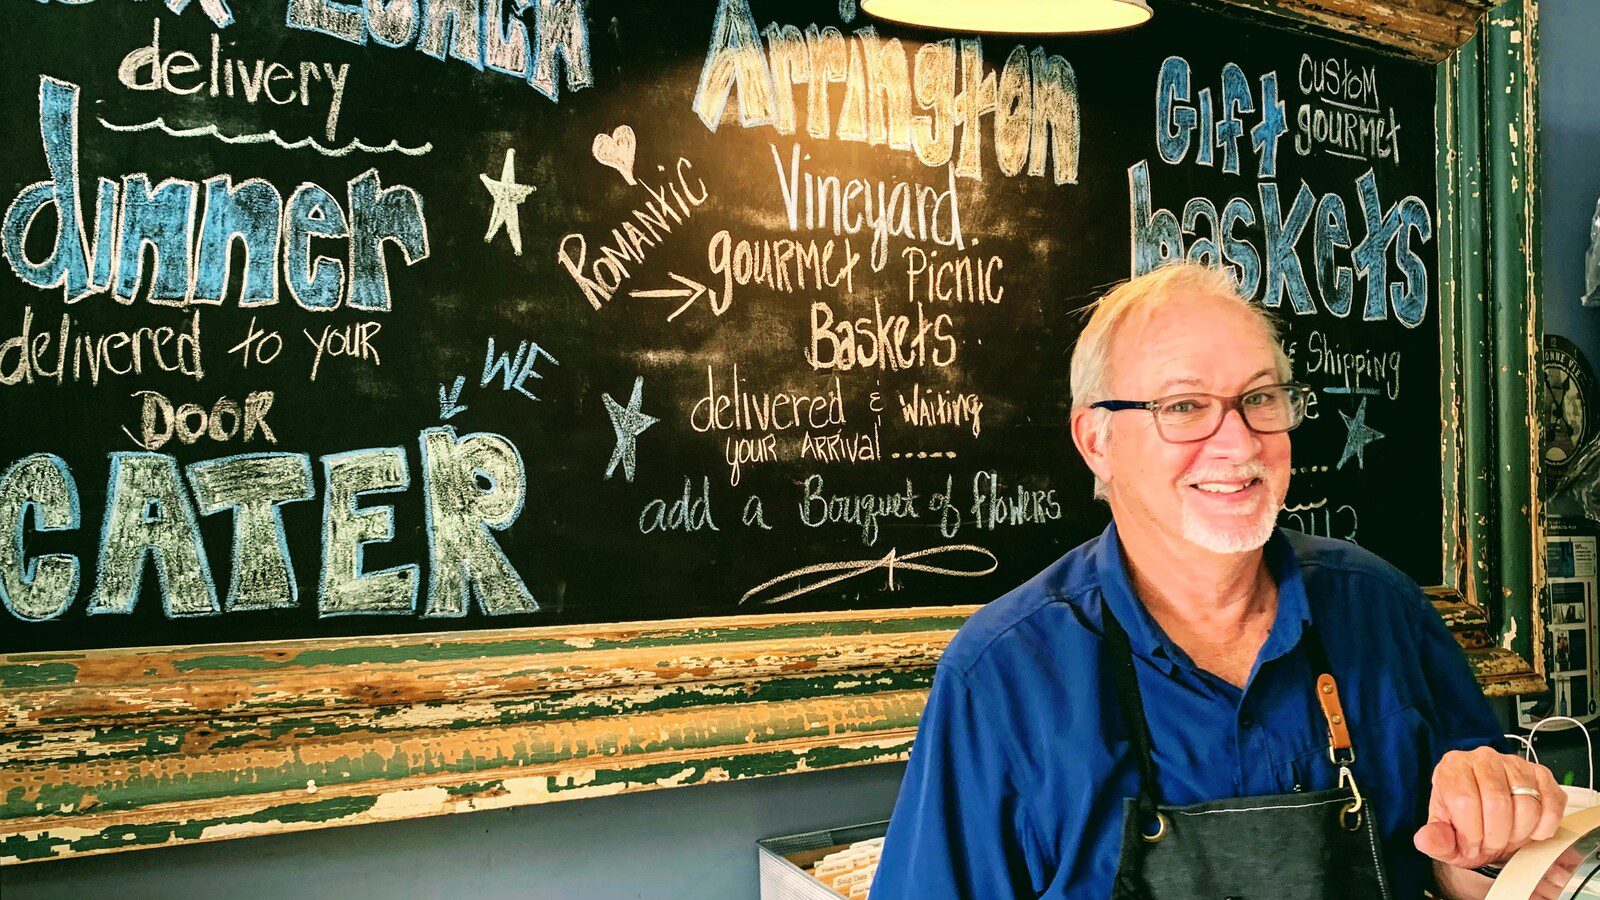 LUNCH
delivery
dinner
delivered to your
DOOR
WE
CATER
Arrington
Vineyard
ROMANtic
gouRMet Picnic
Baskets
delivered & WAiting
your ARRIVAL.....
add a Bouquet of flowers
Gift
custom
gourmet
baskets
Shipping
Soup Data